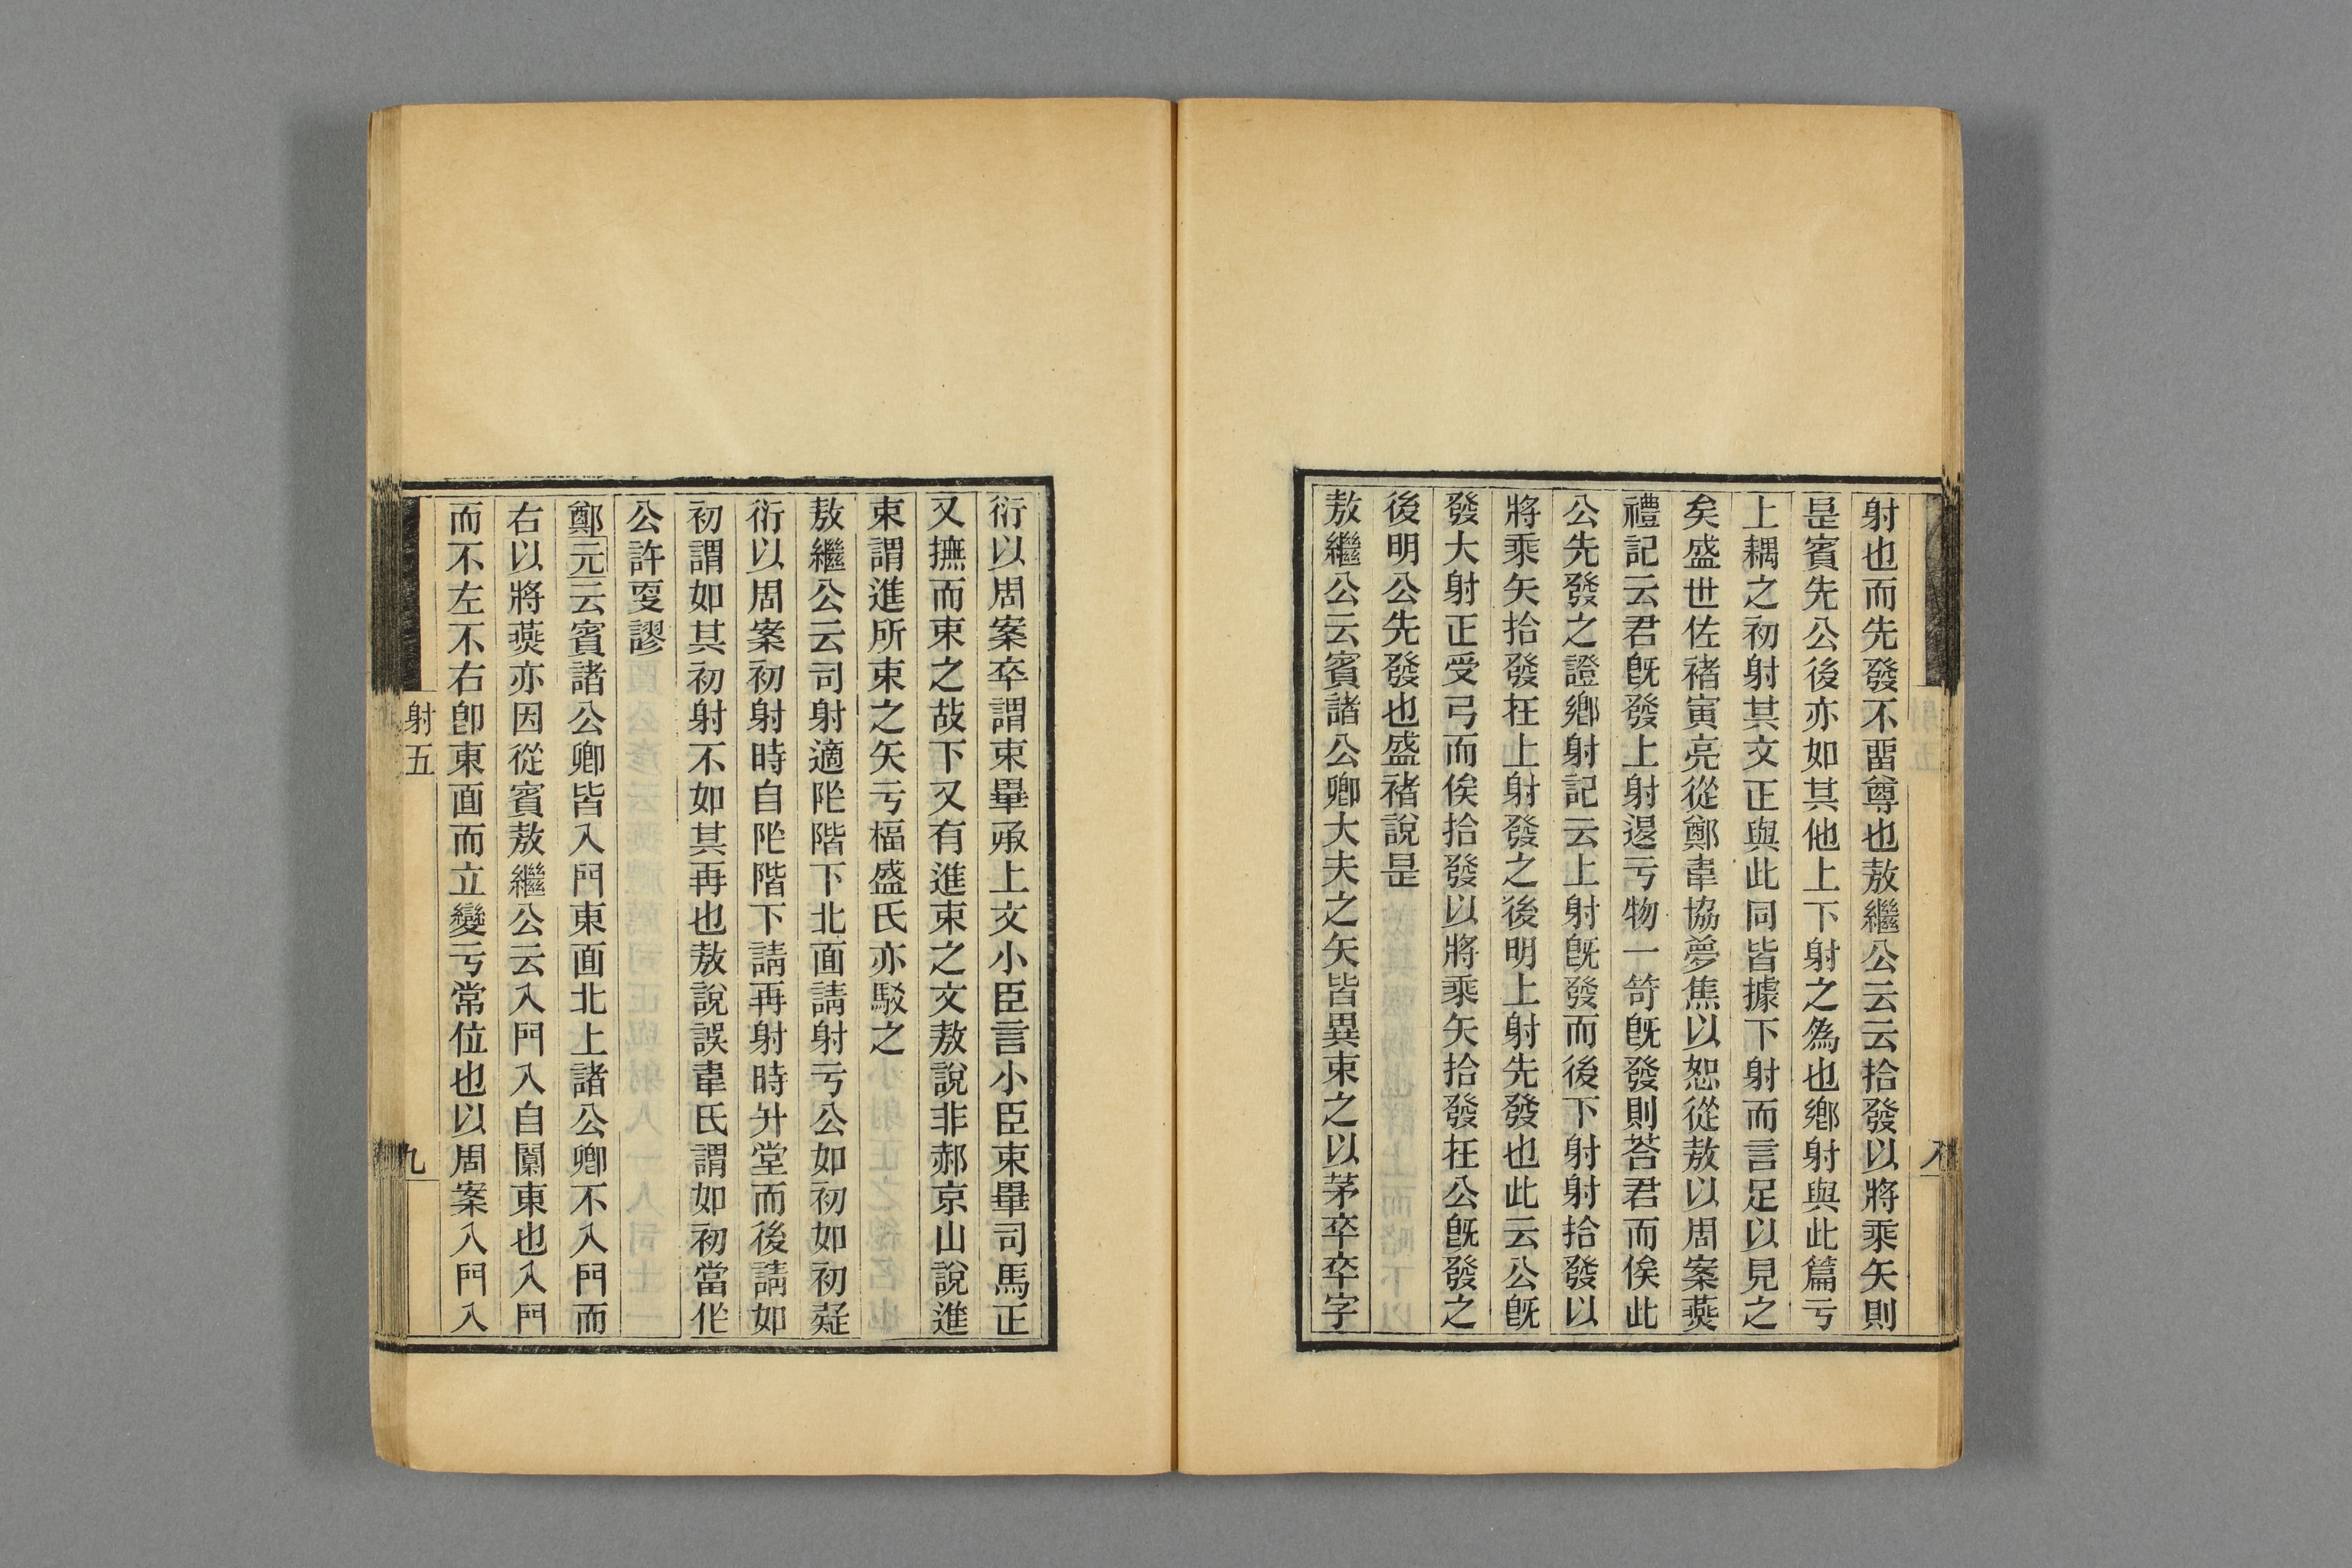 射也而先發不畱尊也敖繼公云云拾發以將乘矢則
是賓先公後亦如其他上下射之爲也鄉射與此篇亏
上耦之初射其文正與此同皆據下射而言足以見之
矣盛世佐褚寅亮從鄭韋協夢焦以恕從敖以周案燕
禮記云君旣發上射退亏物一笴旣發則荅君而俟此
公先發之證鄉射記云上射旣發而後下射射拾發以
將乘矢拾發在上射發之後明上射先發也此云公旣
發大射正受弓而俟拾發以將乘矢拾發在公旣發之
後明公先發也盛褚說是
敖繼公云賓諸公卿大夫之矢皆異束之以茅卒卒字
八
衍以周案卒謂束畢承上文小臣言小臣束畢司馬正
又撫而束之故下又有進束之文敖說非郝京山說進
束謂進所束之矢亏楅盛氏亦駁之
敖繼公云司射適阼階下北面請射亏公如初如初疑
衍以周案初射時自阼階下請再射時升堂而後請如
初謂如其初射不如其再也敖說誤韋氏謂如初當作
公許㪅謬
鄭元云賓諸公卿皆入門東面北上諸公卿不入門而
右以將燕亦因從賓敖繼公云入門入自闑東也入門
而不左不右卽東面而立變亏常位也以周案入門入
射五
九